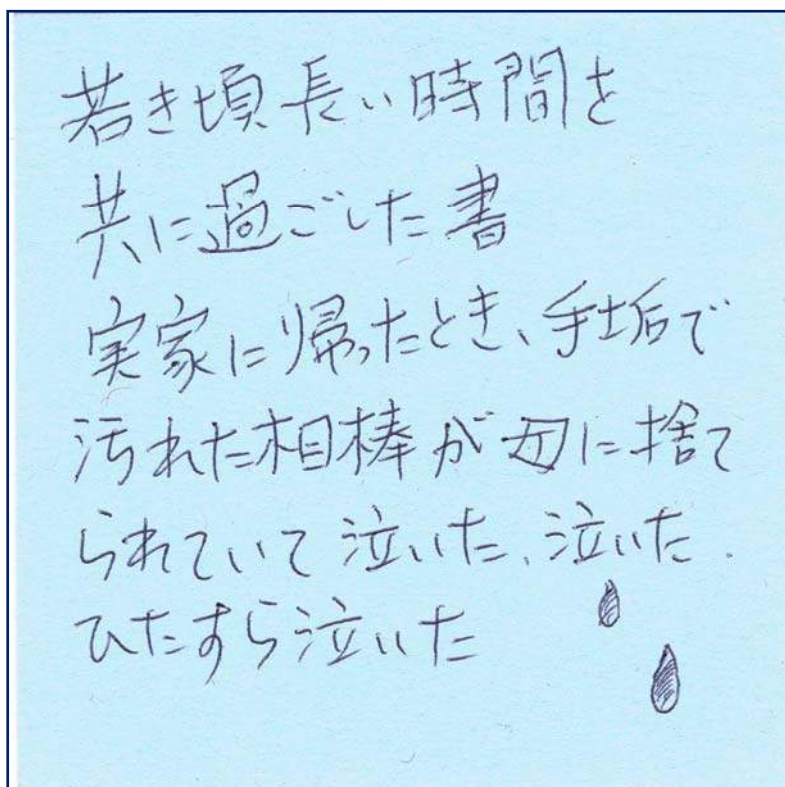 若き頃長い時間を
共に過ごした書
実家に帰ったとき、手垢で
汚れた相棒が母に捨て
られていて泣いた、泣いた、
ひたすら泣いた